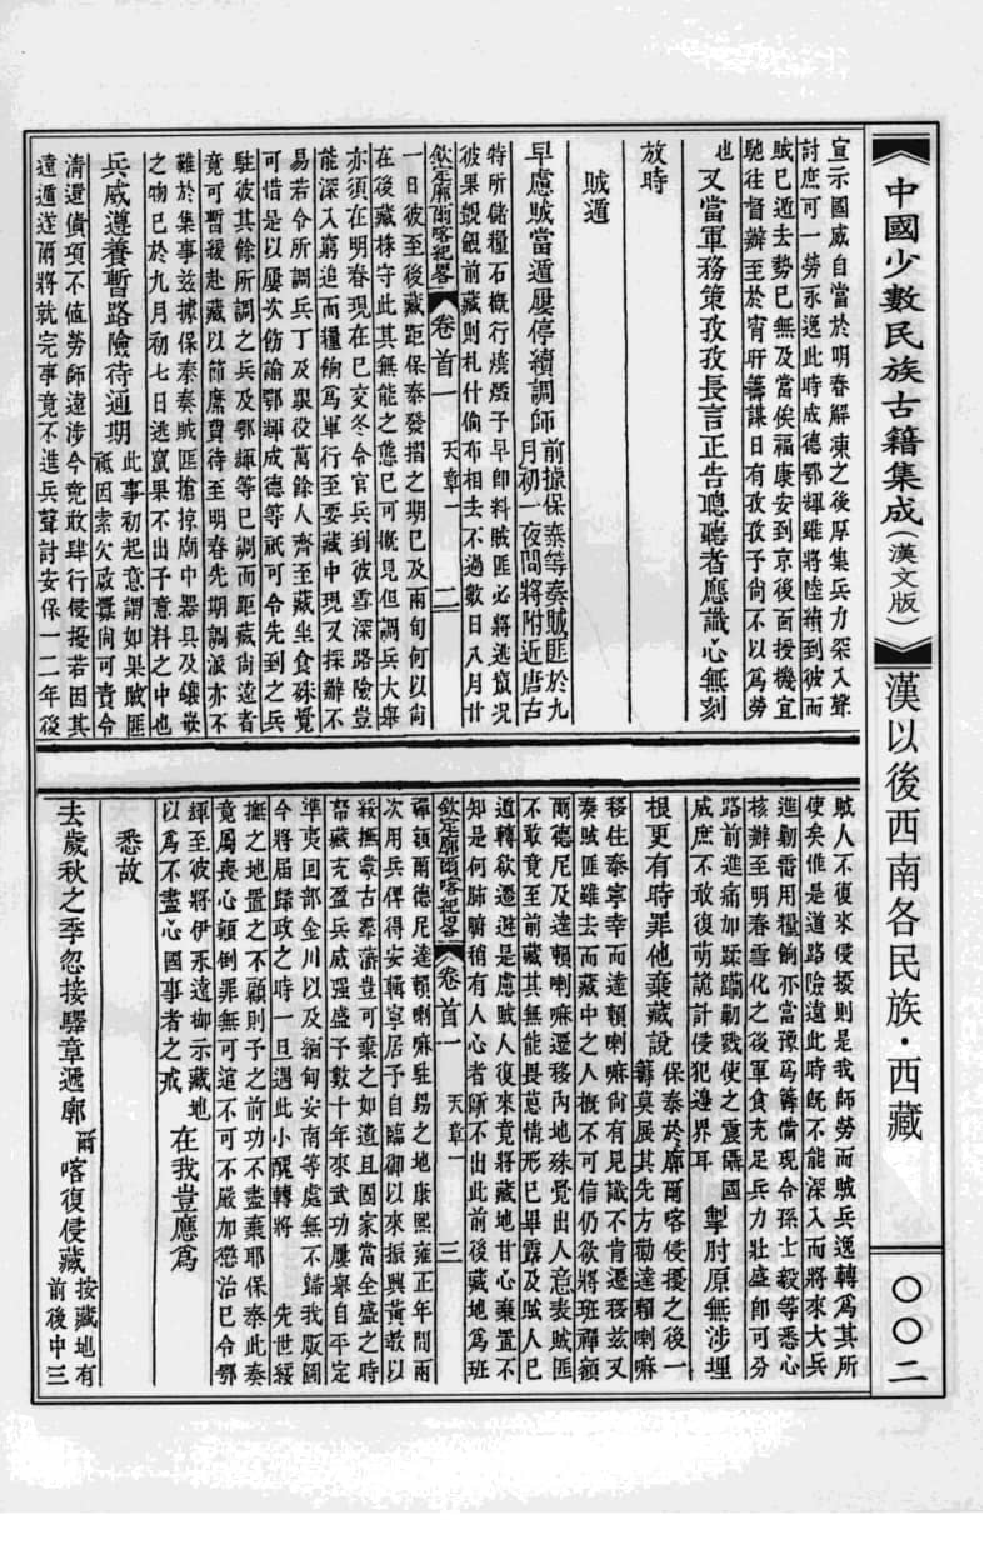 中國少數民族古籍集成（漢文版）
漢以後西南各民族・西藏
〇〇二
宣示國威自當於明春解凍之後厚集兵力深入聲
討庶可一勞永逸此時成德鄂輝雖將陸續到彼而
賊已遁去勢已無及當俟福康安到京後面授機宜
馳往督辦至於宵旰籌謀日有孜孜予尚不以為勞
也
又當軍務策孜孜長言正告聰聽者應識心無刻
放時
賊遁
早慮賊當遁屢停續調師
前據保泰等奏賊匪於九
月初一夜間將附近唐古
特所儲糧石概行燒燬予早即料賊匪必將逃竄況
彼果覬覦前藏則札什倫布相去不過數日八月廿
欽定廓爾喀紀畧
卷首一
天章一
二
一日彼至後藏距保泰發摺之期已及兩旬何以尚
在後藏株守此其無能之態已可概見但調兵大舉
亦須在明春現在已交冬令官兵到彼雪深路險豈
能深入窮追而糧餉為軍行至要藏中現又採辦不
易若令所調兵丁及跟役萬餘人齊至藏坐食殊覺
可惜是以屢次仿諭鄂輝成德等祇可令先到之兵
駐彼其餘所調之兵及鄂輝等已調而距藏尚遠者
竟可暫緩赴藏以節糜費待至明春先期調派亦不
難於集事茲據保泰奏賊匪搶掠廟中器具及鑲嵌
之物已於九月初七日逃竄果不出予意料之中也
兵威遵養暫路險待通期
此事初起意謂如果賊匪
祗因索欠啟釁尚可責令
清還債項不值勞師遠涉今竟敢肆行侵擾若因其
遠遁遂爾將就完事竟不進兵聲討安保一二年後
賊人不復來侵擾則是我師勞而賊兵逸轉為其所
使矣惟是道路險遠此時既不能深入而將來大兵
進勦需用糧餉亦當豫為籌備現令孫士毅等悉心
核辦至明春雪化之後軍食充足兵力壯盛即可分
路前進痛加蹂躪勦戮使之震懾國
威庶不敢復萌詭計侵犯邊界耳
掣肘原無涉埋
根更有時罪他棄藏說
保泰於廓爾喀侵擾之後一
籌莫展其先方勸達賴喇嘛
移住泰寧幸而達賴喇嘛尚有見識不肯遷移茲又
奏賊匪雖去而藏中之人概不可信仍欲將班禪額
爾德尼及達賴喇嘛遷移內地殊覺出人意表賊匪
不敢竟至前藏其無能畏葸情形已畢露及賊人已
遁轉欲遷避是慮賊人復來竟將藏地甘心棄置不
知是何肺腑稍有人心者斷不出此前後藏地為班
欽定廓爾喀紀畧
卷首一
天章一
三
禪額爾德尼達賴喇嘛駐錫之地康熙雍正年間兩
次用兵俾得安輯寧居予自臨御以來振興黃教以
綏撫蒙古羣藩豈可棄之如遺且國家當全盛之時
帑藏充盈兵威强盛予數十年來武功屢舉自平定
準夷回部金川以及緬甸安南等處無不歸我版圖
今將屆歸政之時一旦遇此小醜轉將　先世綏
撫之地置之不顧則予之前功不盡棄耶保泰此奏
竟屬喪心顛倒罪無可逭不可不嚴加懲治已令鄂
輝至彼將伊永遠枷示藏地
以為不盡心國事者之戒
在我豈應為
悉故
去歲秋之季忽接驛章遞廓爾喀復侵藏
按藏地有
前後中三